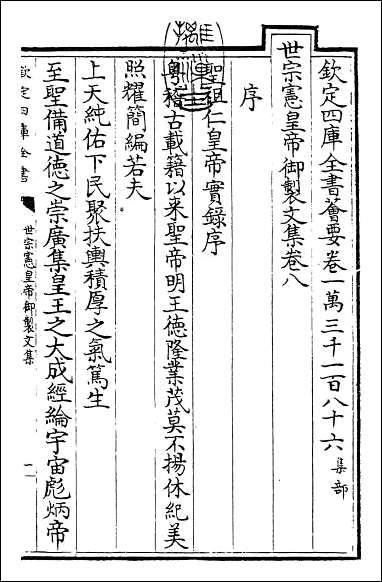 欽定四庫全書薈要卷一萬三千一百八十六集部
世宗憲皇帝御製文集卷八
序
聖祖仁皇帝實錄序
粤稽古載籍以来聖帝明王徳隆業茂莫不揚休紀美
照耀簡編若夫
上天純佑下民聚扶輿積厚之氣篤生
至聖備道徳之崇廣集皇王之大成經綸宇宙彪炳帝
欽定四庫全書
世宗憲皇帝御製文集
一